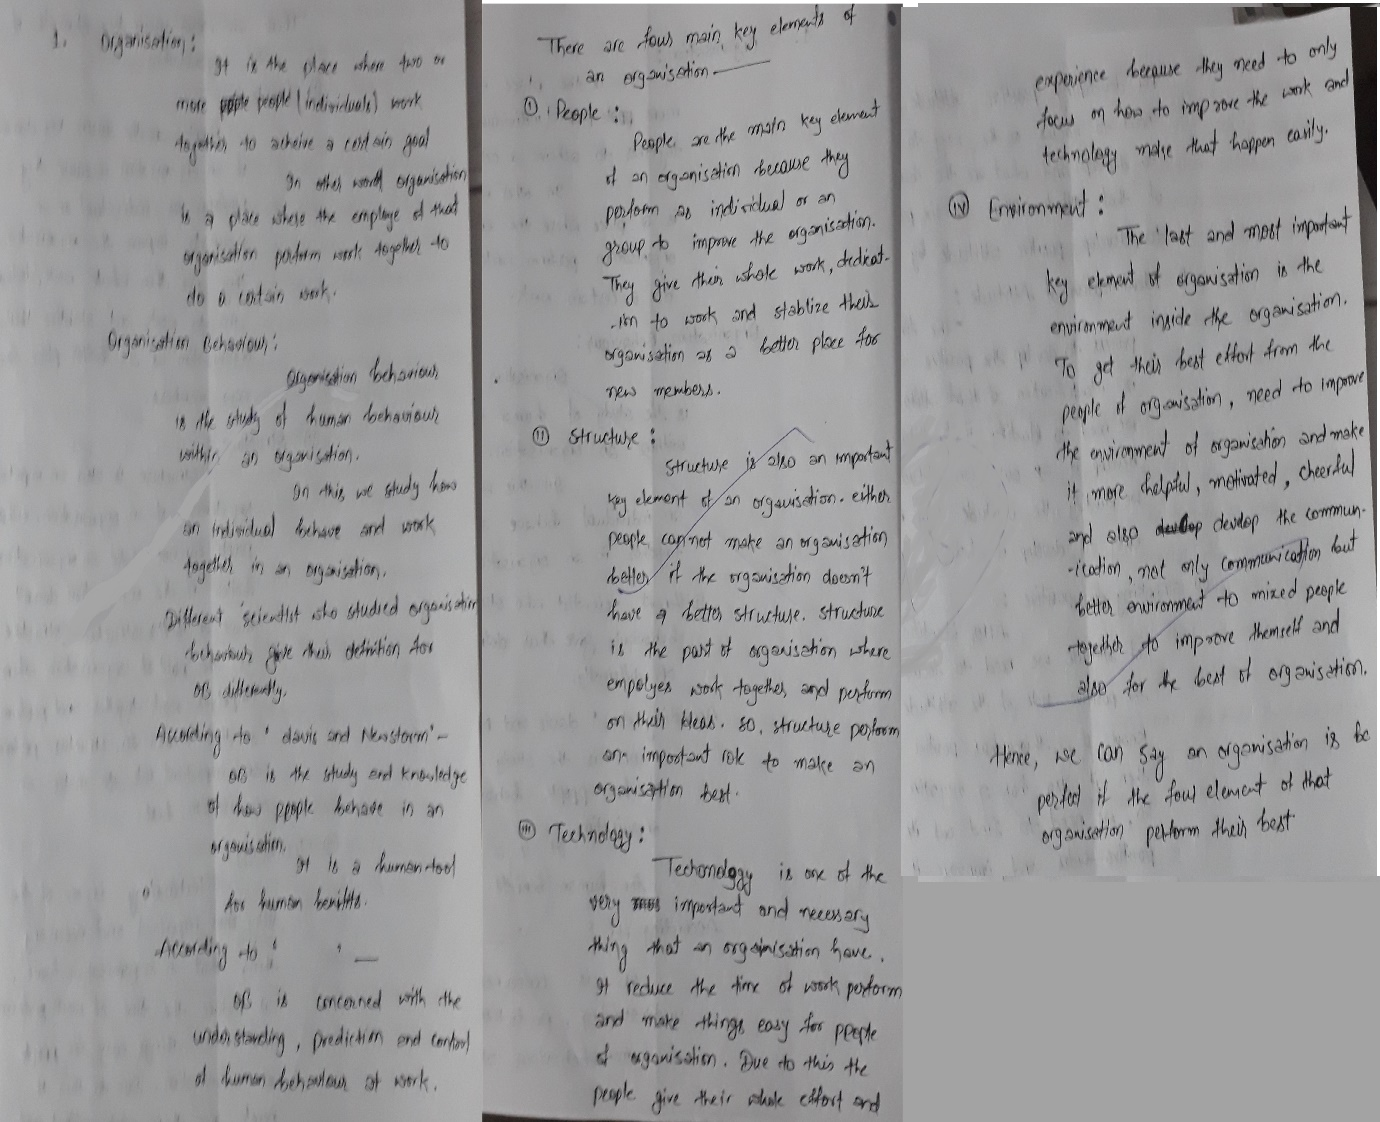 1. Organisation:
It is the place where two or
more people (individuals) work
together to acheive a certain goal
In other word organisation
is a place where the employe of that
organisation perform work together to
do a certain work.
Organisation Behaviour:
Organisation behaviour
is the study of human behaviour
within an organisation.
In this we study how
an individual behave and work
together in an organisation.
Different scientist who studied organisation
behaviour give their definition for
OB differently.
According to ' davis and Newstorm' -
OB is the study and knowledge
of how people behave in an
organisation.
It is a human tool
for human benifits.
According to ' ' —
OB is concerned with the
understanding, prediction and control
of human behaviour at work.
There are four main key elements of
an organisation —
(i) People :
People are the main key element
of an organisation because they
perform as individual or an
group to improve the organisation.
They give their whole work, dedicat-
-ion to work and stablize their
organisation as a better place for
new members.
(ii) Structure :
Structure is also an important
key element of an organisation. either
people cannot make an organisation
better if the organisation doesn't
have a better structure. structure
is the part of organisation where
empolyes work together and perform
on their Ideas. so, structure perform
an important role to make an
organisation best.
(iii) Technology :
Techonology is one of the
very important and necessary
thing that an organisation have.
It reduce the time of work perform
and make things easy for people
of organisation. Due to this the
people give their whole effort and
experience because they need to only
focus on how to improve the work and
technology make that happen easily.
(iv) Environment :
The last and most important
key element of organisation is the
environment inside the organisation.
To get their best effort from the
people of organisation, need to improve
the environment of organisation and make
it more helpful, motivated, cheerful
and also develop the commun-
-ication, not only communication but
better environment to mixed people
together to improve themself and
also for the best of organisation.
Hence, we can say an organisation is be
perfect if the four element of that
organisation perform their best